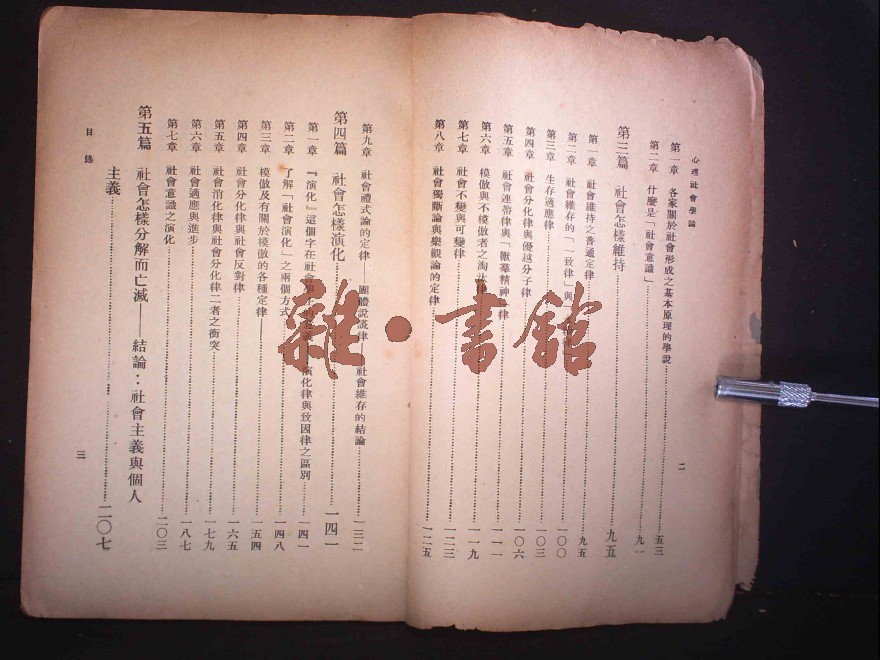 心理社會學論
第一章 各家關於社會形成之基本原理的學說 五三
第二章 什麼是「社會意識」 九一
第三篇 社會怎樣維持 九五
第一章 社會維持之普通定律 九五
第二章 社會維存的「一致律」與 一〇〇
第三章 生存適應律 一〇三
第四章 社會分化律與優越分子律 一〇六
第五章 社會連帶律與「獸羣精神」律 一一一
第六章 模倣與不模倣者之淘汰律 一一九
第七章 社會不變與可變律 一二三
第八章 社會獨斷論與樂觀論的定律 一二五
二
第九章 社會禮式論的定律——團體說謊律——社會維存的結論 一三二
第四篇 社會怎樣演化 一四一
第一章 「演化」這個字在社會學上的 演化律與致因律之區別 一四一
第二章 了解「社會演化」之兩個方式 一四八
第三章 模倣及有關於模倣的各種定律—— 一五四
第四章 社會分化律與社會反對律 一六五
第五章 社會消化律與社會分化律二者之衝突 一七九
第六章 社會適應與進步 一八七
第七章 社會意識之演化 二〇三
第五篇 社會怎樣分解而亡滅——結論：社會主義與個人
主義 二〇七
目錄
三
雜·書館